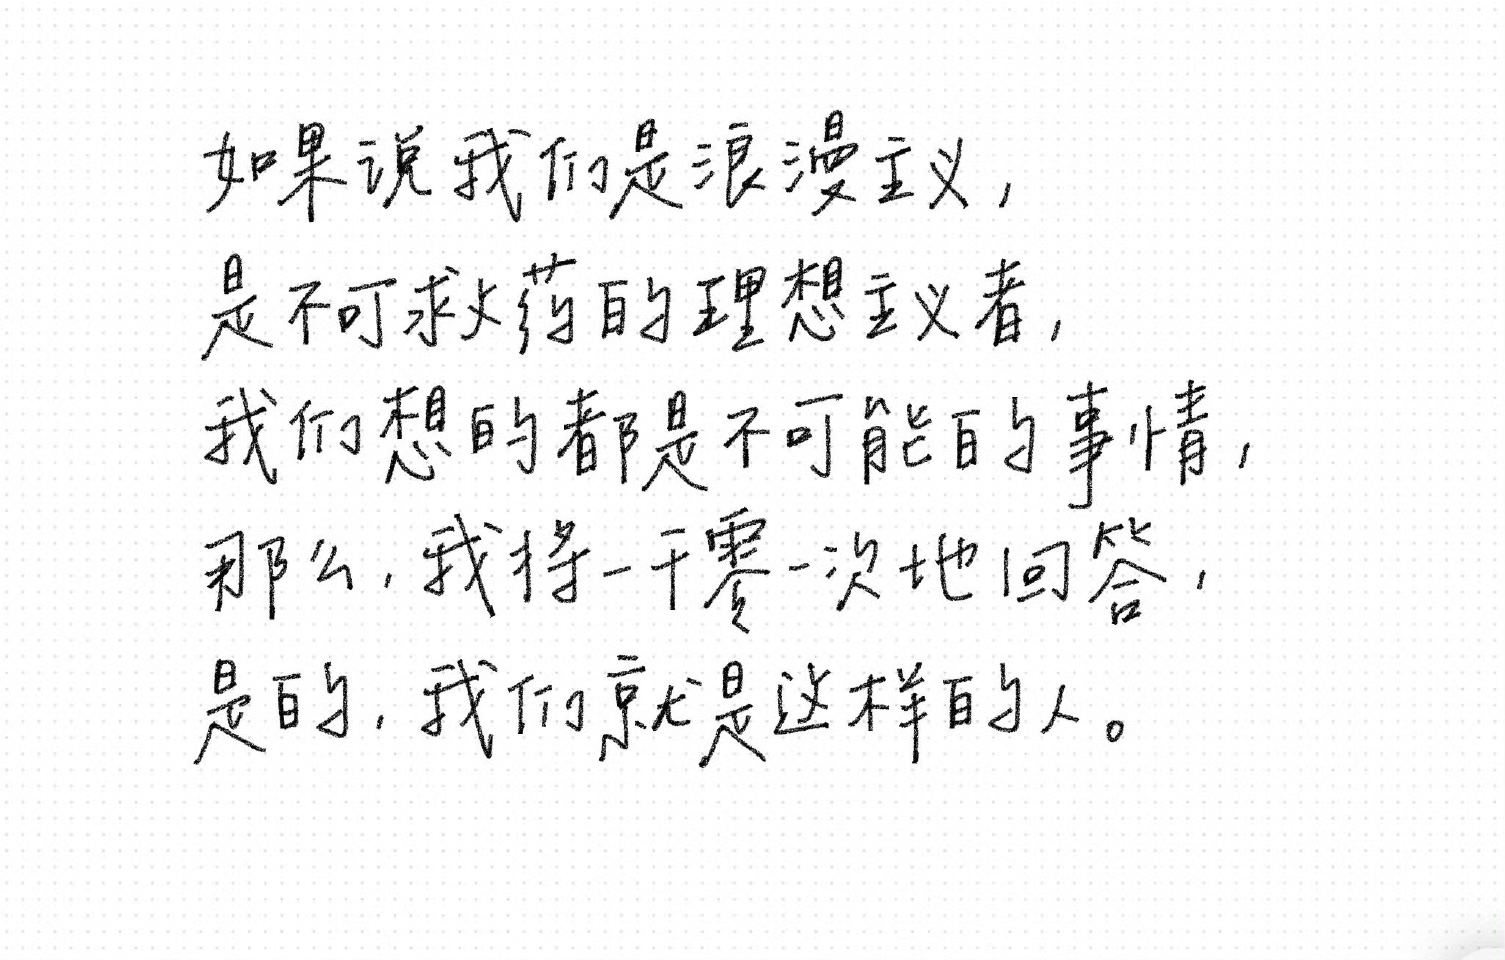 如果说我们是浪漫主义，
是不可救药的理想主义者，
我们想的都是不可能的事情，
那么，我将一千零一次地回答，
是的，我们就是这样的人。